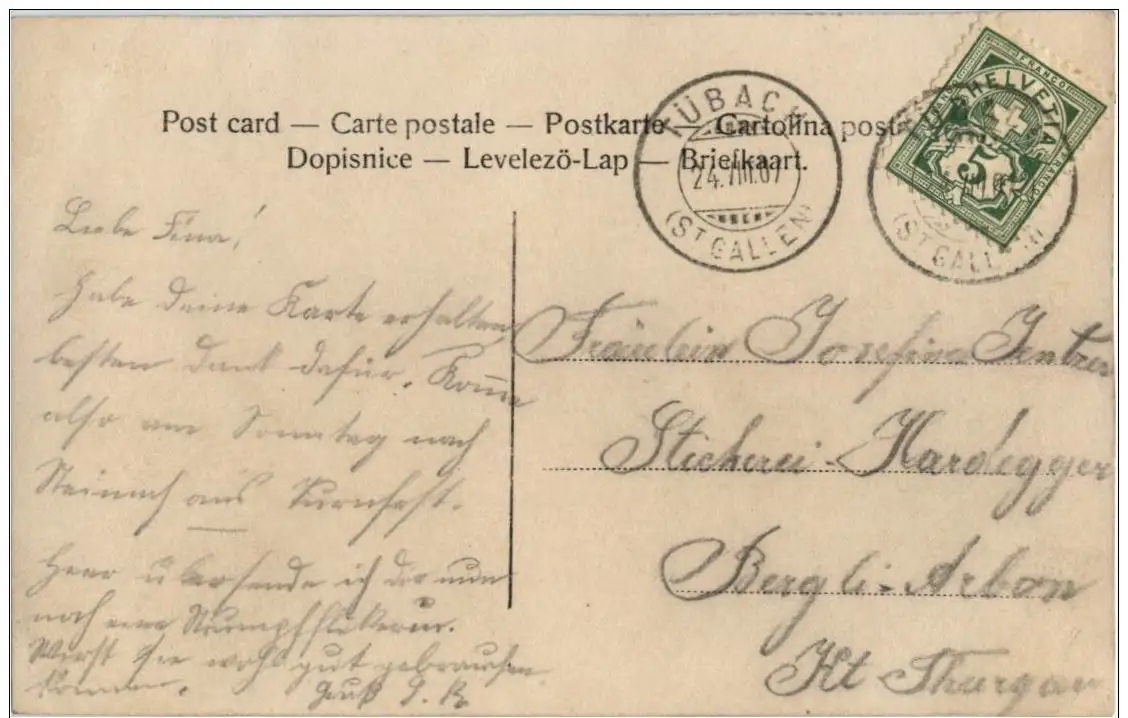 Post card — Carte postale — Postkarte — Cartolina post
Dopisnice — Levelezö-Lap — Briefkaart.
KÜBACH
24.VIII.07
(ST GALLEN)
HELVETIA
FRANCO
FRANCO
5
(ST GALLEN)
Liebe Fina!
Habe deine Karte erhalten
besten Dank dafür. Komme
also am Sonntag nach
Steinach ans Turnfest.
übersende ich dir nun
noch eine Strumpfflikerin.
Wirst sie wohl gut gebrauchen
können. Gruß J. B.
Fräulein Josefina
Stickerei-Hardegger
Bergli-Arbon
Kt Thurgau